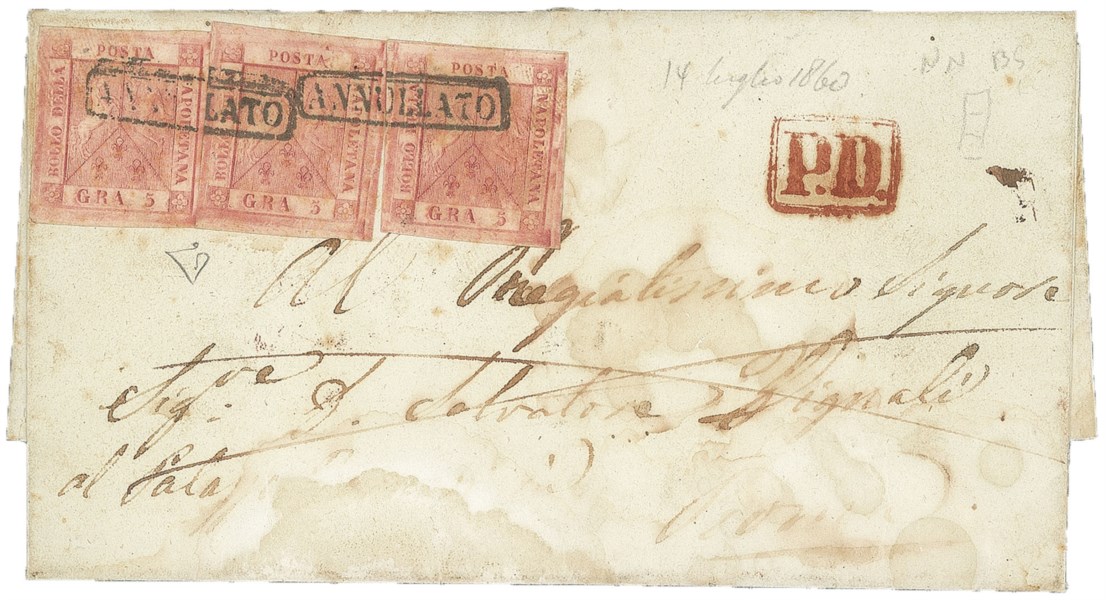 POSTA POSTA POSTA
BOLLO DELLA NAPOLETANA BOLLO DELLA NAPOLETANA BOLLO DELLA NAPOLETANA
GRA 5 GRA 5 GRA 5
ANNULLATO ANNULLATO
14 luglio 1860
NN BS
P.D.
Al Pregiatissimo Signore
Sig.re D. Salvatore
al Pala